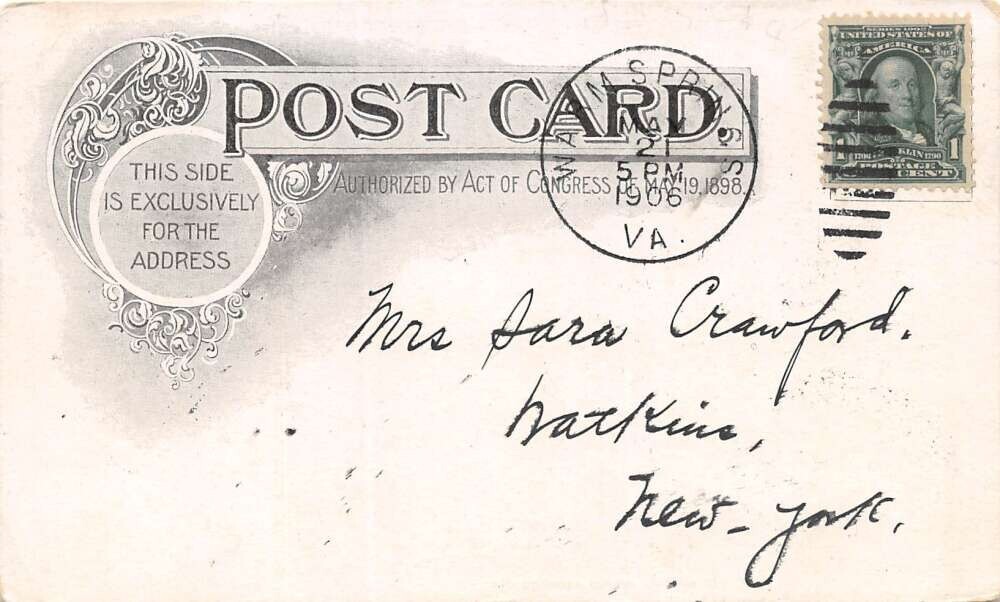 POST CARD
AUTHORIZED BY ACT OF CONGRESS OF MAY 19, 1898.
THIS SIDE
IS EXCLUSIVELY
FOR THE
ADDRESS
WARM SPRINGS
MAY
21
5 PM
1906
VA.
UNITED STATES OF
AMERICA
1 1706 FRANKLIN 1790 1
POSTAGE
CENT
Mrs Sara Crawford.
Watkins,
New-York.